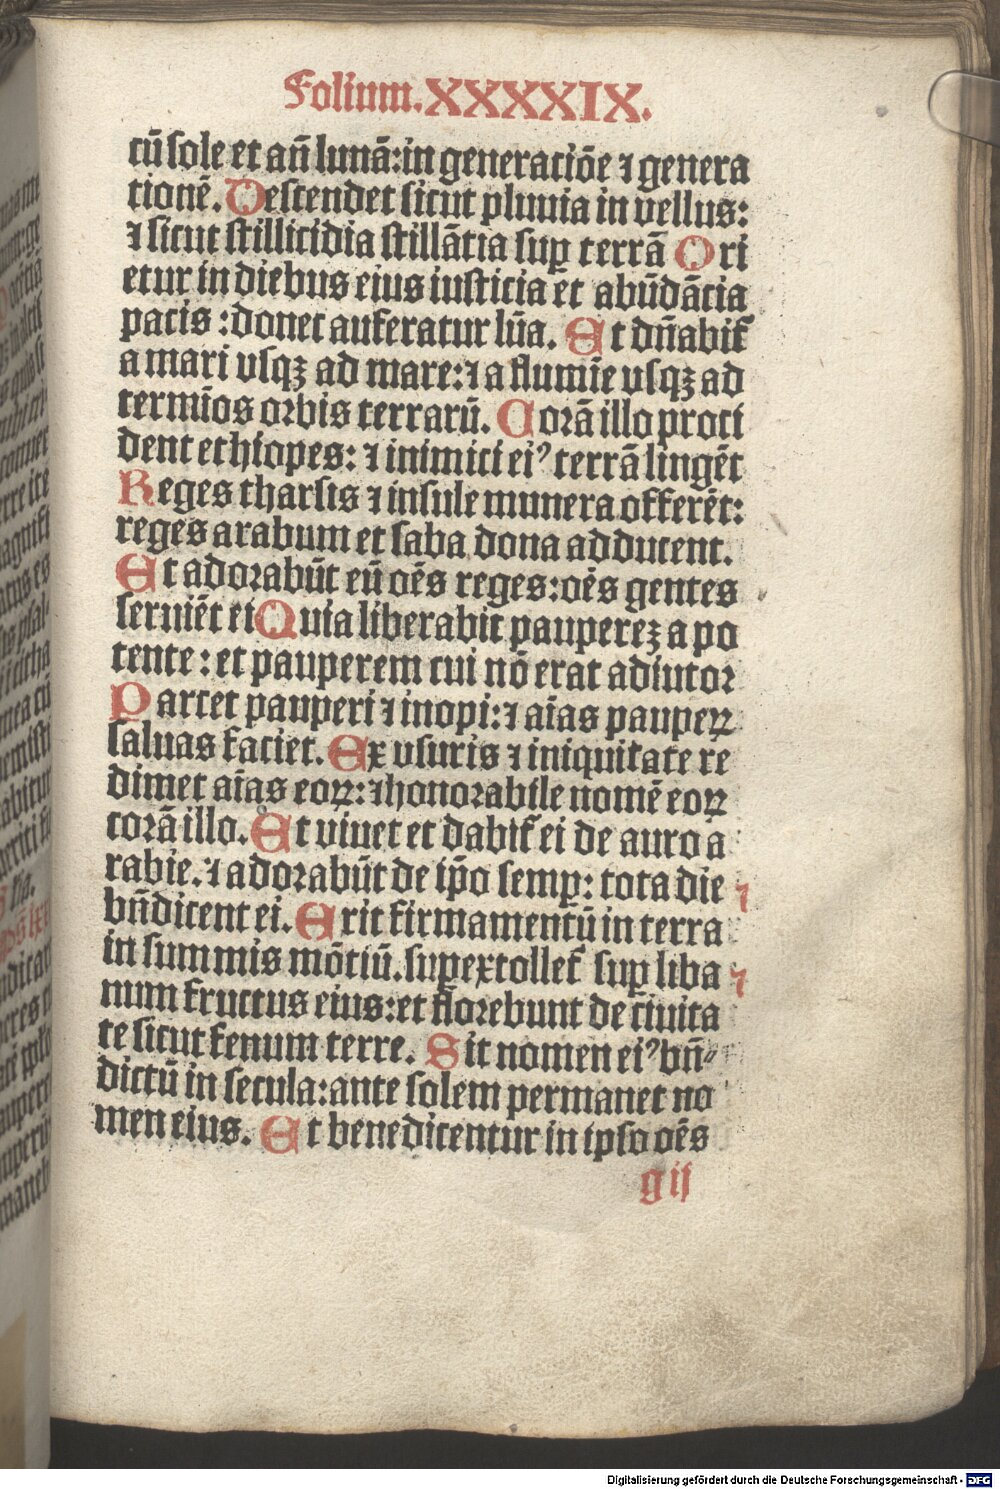 Folium.XXXXIX.
cū sole et añ lunā:in generatiōe ⁊ genera
tionē. Descendet sicut pluuia in vellus:
⁊ sicut stillicidia stillātia sup̱ terrā Ori
etur in diebus eius iusticia et abūdātia
pacis :donec auferatur lūa. Et dñabit᷑
a mari vsqꝫ ad mare:⁊ a flumīe vsqꝫ ad
termīos orbis terrarū. Corā illo proci
dent ethiopes: ⁊ inimici eiꝰ terrā lingēt
Reges tharsis ⁊ insule munera offerēt:
reges arabum et saba dona adducent.
Et adorabūt eū oēs reges:oēs gentes
seruiēt ei Quia liberabit paupereꝫ a po
tente: et pauperem cui nō erat adiutor
Parcet pauperi ⁊ inopi:⁊ aīas pauperꝝ
saluas faciet. Ex vsuris ⁊ iniquitate re
dimet aīas eoꝝ:⁊honorabile nomē eoꝝ
corā illo. Et viuet et dabit᷑ ei de auro a
rabie.⁊ adorabūt de ip̄o semp̱: tota die
bñdicent ei. Erit firmamentū in terra
in summis mōtiū.sup̱extollet᷑ sup̱ liba
num fructus eius:et florebunt de ciuita
te sicut fenum terre. Sit nomen eiꝰ bñ⸗
dictū in secula:ante solem permanet no
men eius. Et benedicentur in ipso oēs
g ij
Digitalisierung gefördert durch die Deutsche Forschungsgemeinschaft - DFG